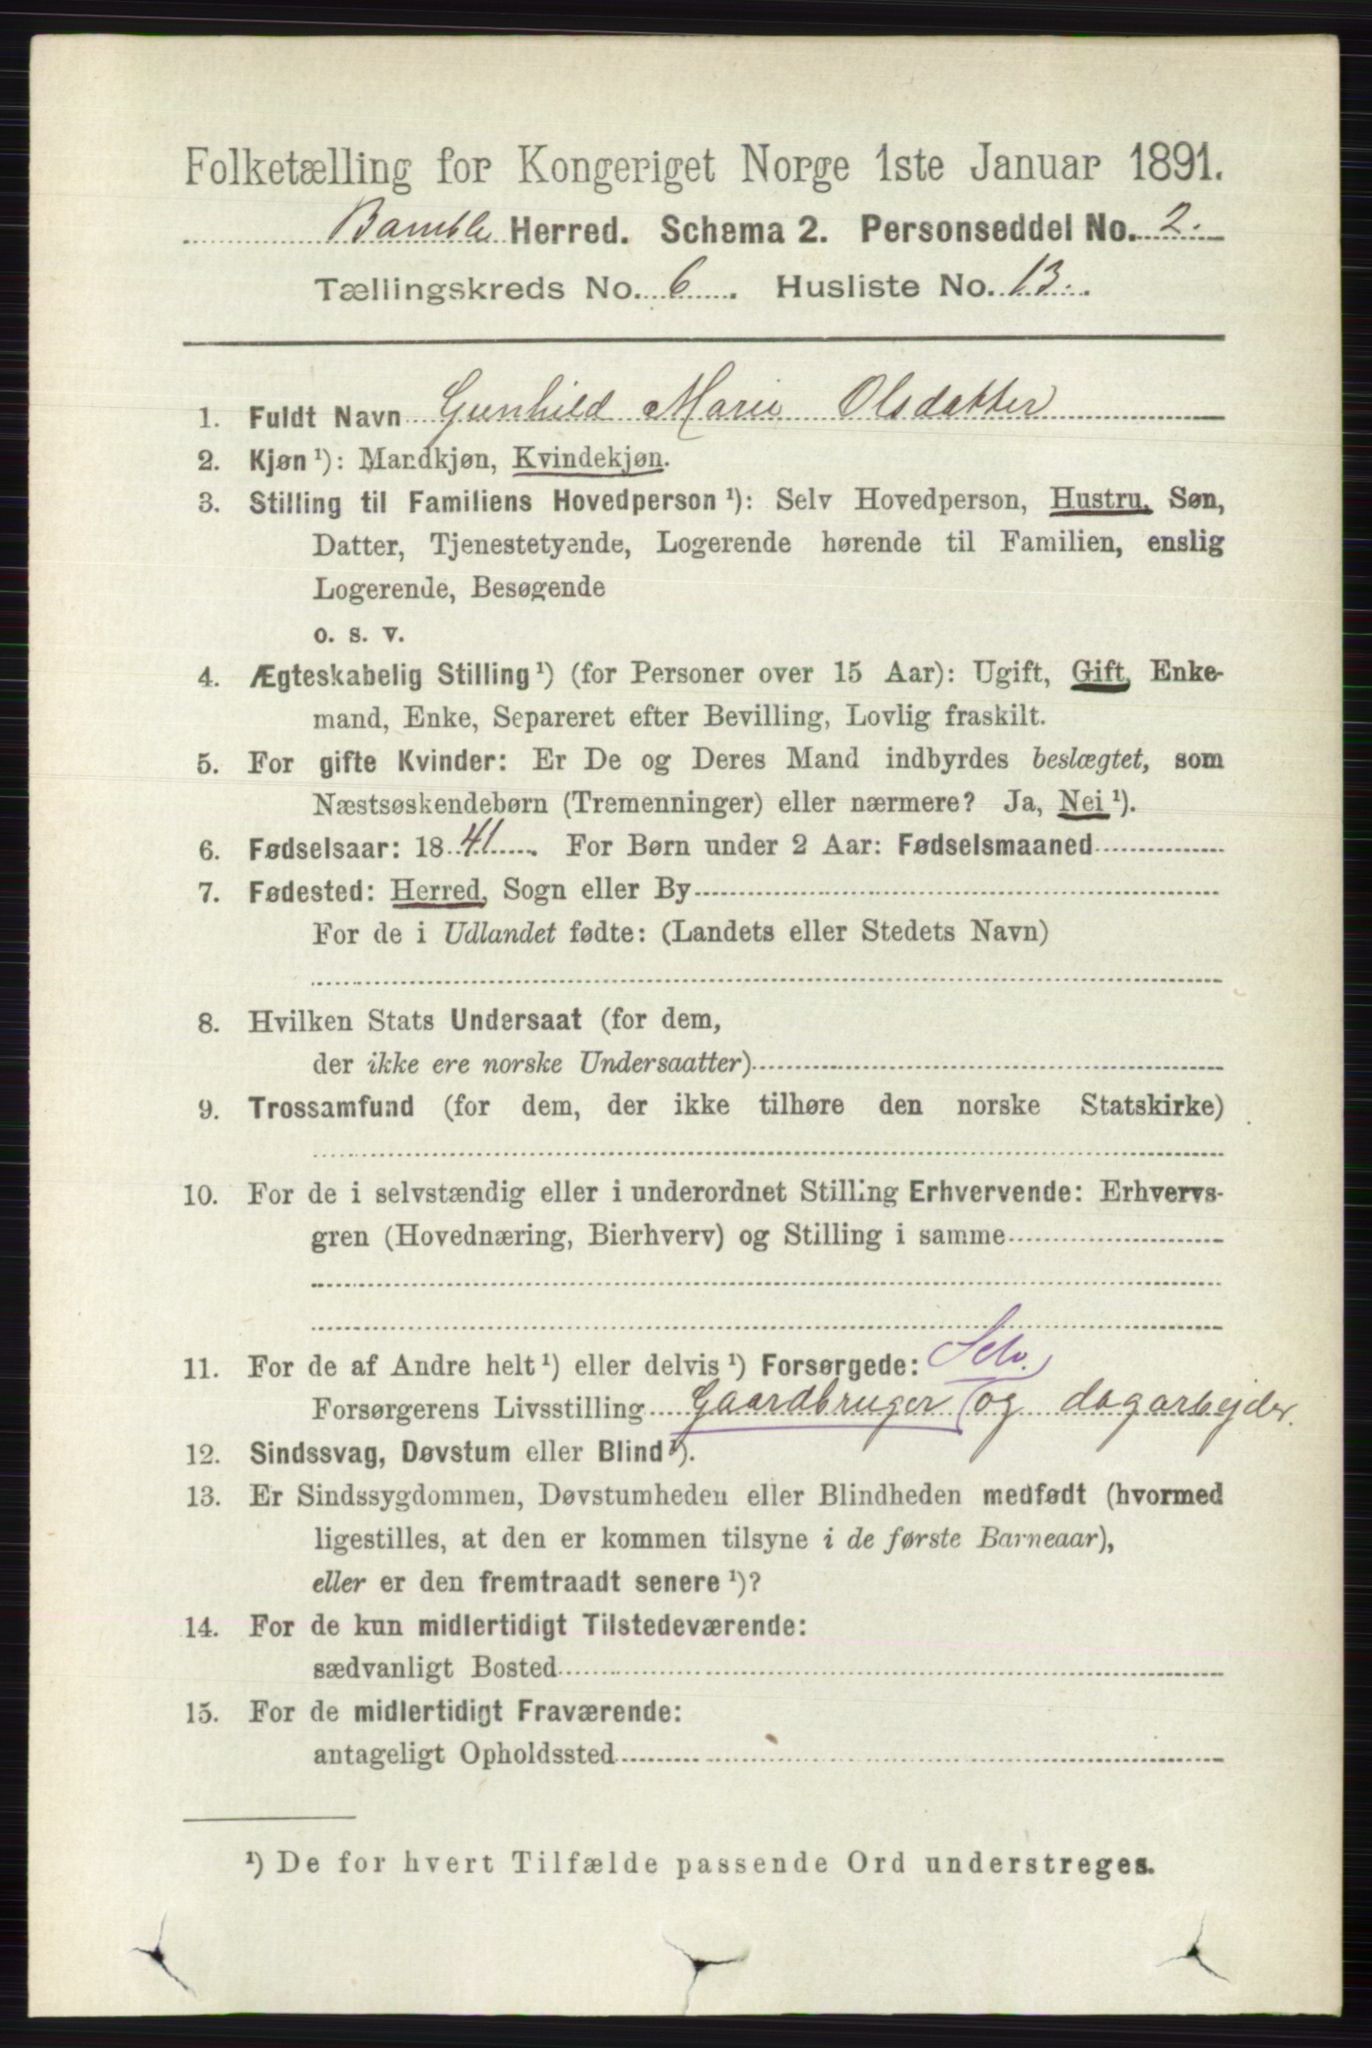 Folketælling for Kongeriget Norge 1ste Januar 1891.
Bamble Herred. Schema 2. Personseddel No. 2.
Tællingskreds No. 6. Husliste No. 13.
1. Fuldt Navn Gunhild Marie Olsdatter
2. Kjøn ¹): Mandkjøn, Kvindekjøn.
3. Stilling til Familiens Hovedperson ¹): Selv Hovedperson, Hustru, Søn,
Datter, Tjenestetyende, Logerende hørende til Familien, enslig
Logerende, Besøgende
o. s. v.
4. Ægteskabelig Stilling ¹) (for Personer over 15 Aar): Ugift, Gift, Enke-
mand, Enke, Separeret efter Bevilling, Lovlig fraskilt.
5. For gifte Kvinder: Er De og Deres Mand indbyrdes beslægtet, som
Næstsøskendebørn (Tremenninger) eller nærmere? Ja, Nei ¹).
6. Fødselsaar: 1841. For Børn under 2 Aar: Fødselsmaaned
7. Fødested: Herred, Sogn eller By
For de i Udlandet fødte: (Landets eller Stedets Navn)
8. Hvilken Stats Undersaat (for dem,
der ikke ere norske Undersaatter)
9. Trossamfund (for dem, der ikke tilhøre den norske Statskirke)
10. For de i selvstændig eller i underordnet Stilling Erhvervende: Erhvervs-
gren (Hovednæring, Bierhverv) og Stilling i samme
11. For de af Andre helt ¹) eller delvis ¹) Forsørgede: Selv.
Forsørgerens Livsstilling Gaardbruger og dagarbejder.
12. Sindssvag, Døvstum eller Blind ¹).
13. Er Sindssygdommen, Døvstumheden eller Blindheden medfødt (hvormed
ligestilles, at den er kommen tilsyne i de første Barneaar),
eller er den fremtraadt senere ¹)?
14. For de kun midlertidigt Tilstedeværende:
sædvanligt Bosted
15. For de midlertidigt Fraværende:
antageligt Opholdssted
¹) De for hvert Tilfælde passende Ord understreges.